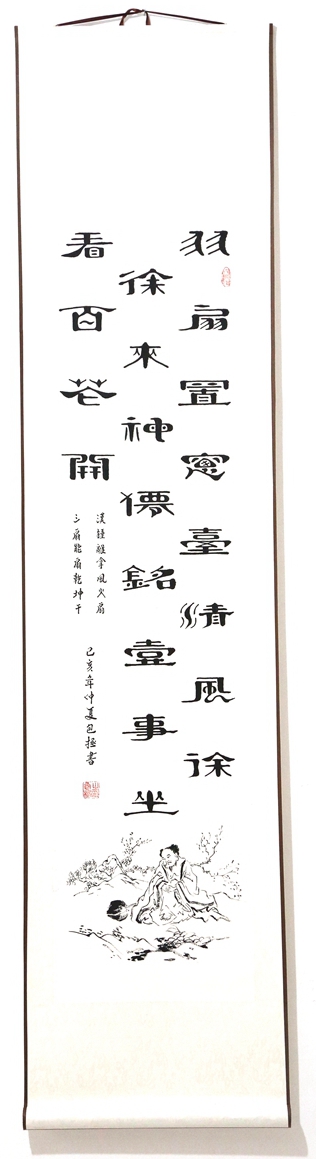 羽扇置窻臺清風徐
徐來神僊銘壹事坐
看百花開
漢鍾離拿風火扇
三扇能扇乾坤干
己亥年仲夏包書